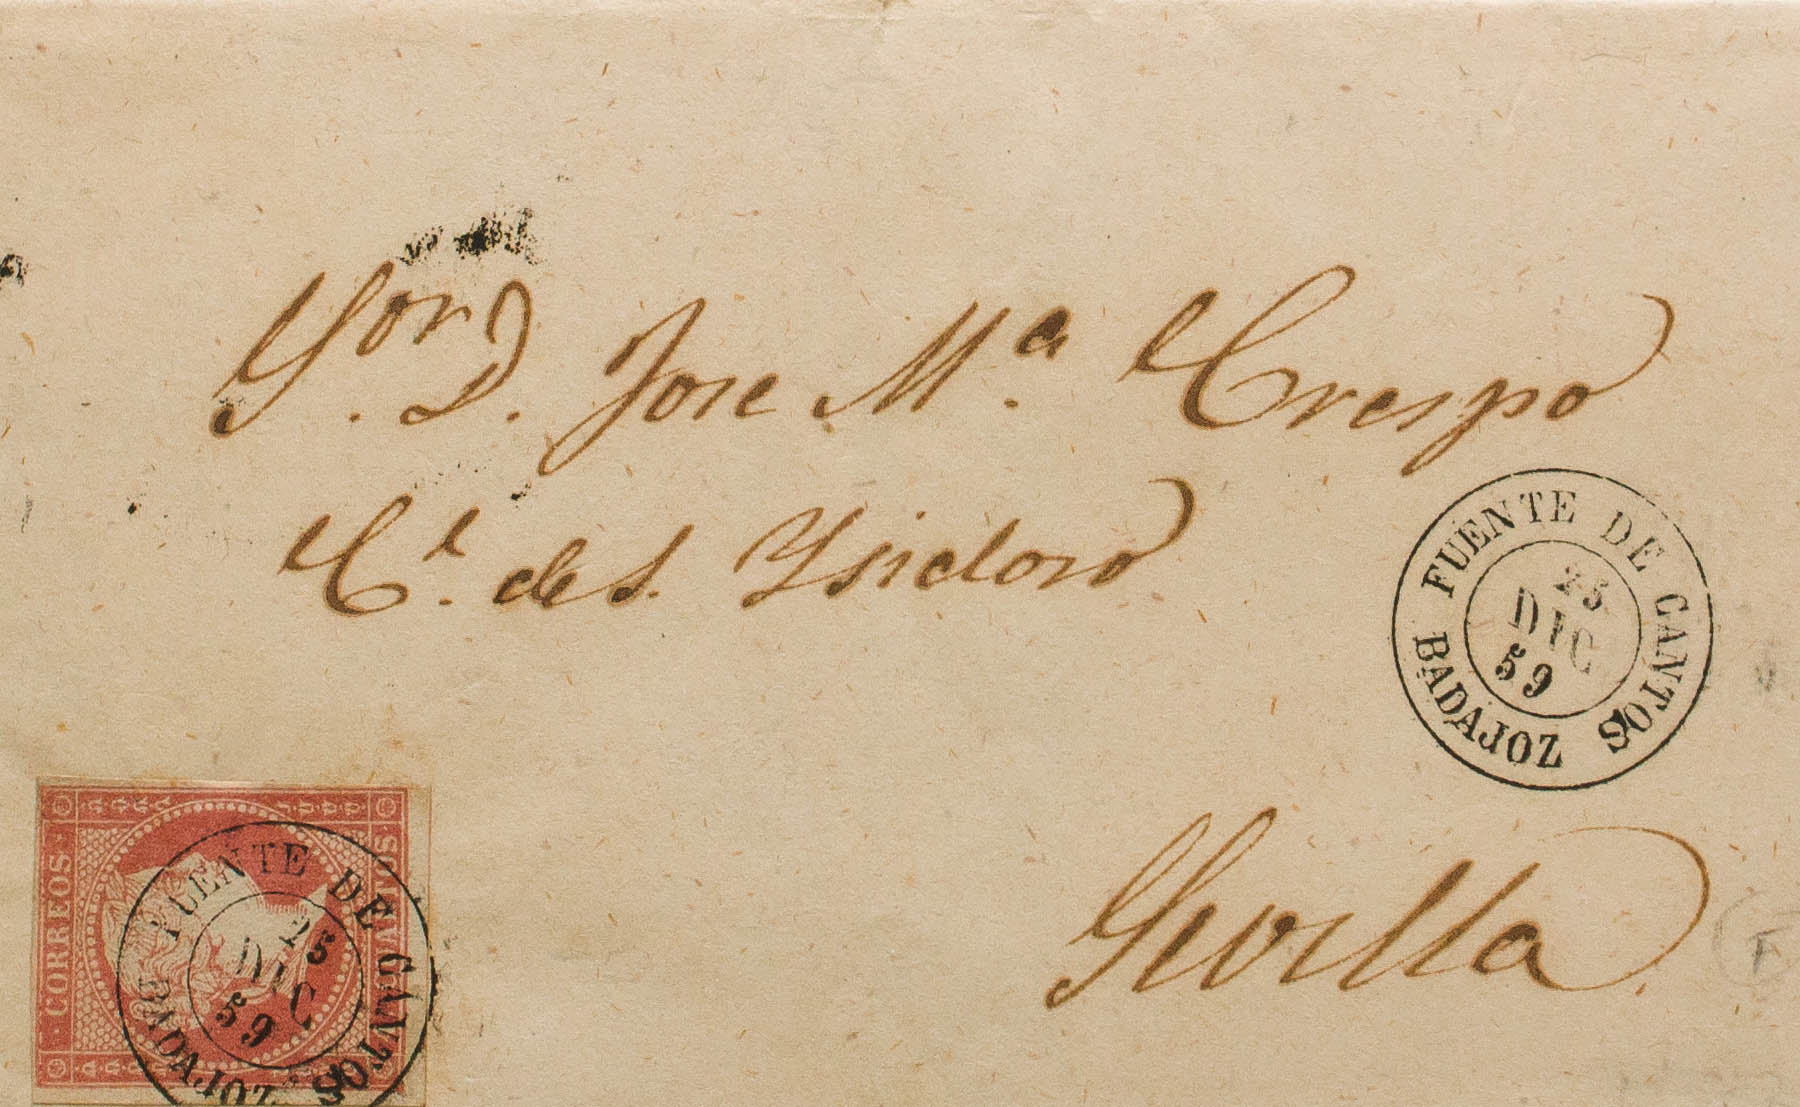 Sor. D. Jose Mª. Crespo
Cl. de S. Ysidoro
FUENTE DE CANTOS
25
DIC
59
BADAJOZ
Sevilla.
CORREOS
4 CUARTOS
FUENTE DE CANTOS
25
DIC
59
BADAJOZ